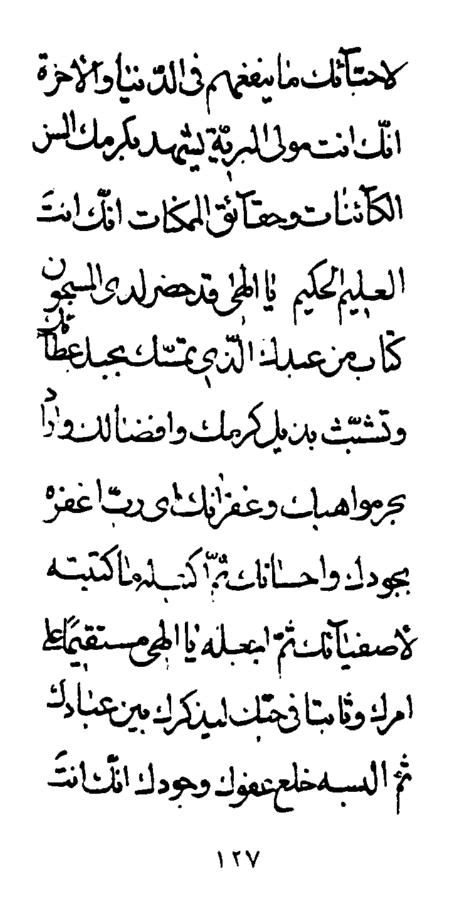 لاحبّآئك ما ينفعهم فى الدّنيا والآخرة
انّك انت مولى البريّة يشهد بكرمك السن
الكآئنات وحقآئق الممكنات انّك انتَ
العليم الحكيم يا الهى قد حضر لدى المسجون
كتاب من عبدك الّذى تمسّك بحبل عطآئك
وتشبّث بذيل كرمك وافضالك واراد
بحر مواهبك وغفرانك اى ربّ اغفره
بجودك واحسانك ثمّ اكتب له ما كتبته
لاصفيآئك ثمّ اجعله يا الهى مستقيمًا على
امرك وثابتا فى حبّك ليذكرك بين عبادك
ثمّ البسه خلع عفوك وجودك انّك انتَ
١٢٧